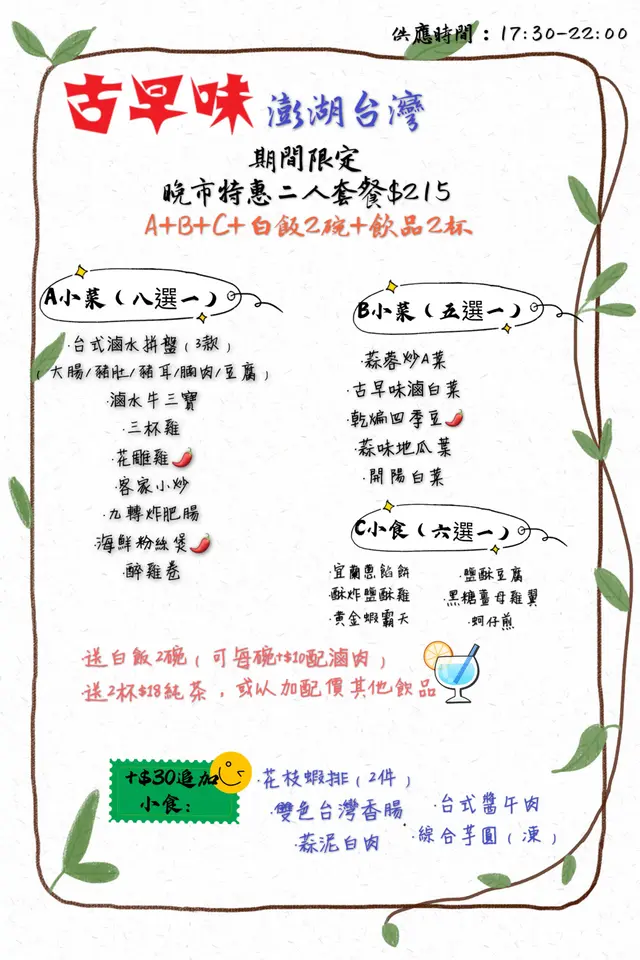 供應時間：17:30-22:00
古早味 澎湖台灣
期間限定
晚市特惠二人套餐$215
A+B+C+白飯2碗+飲品2杯
A小菜（八選一）
·台式滷水拼盤（3款）
（大腸/豬肚/豬耳/腩肉/豆腐）
·滷水牛三寶
·三杯雞
·花雕雞
·客家小炒
·九轉炸肥腸
·海鮮粉絲煲
·醉雞卷
B小菜（五選一）
·蒜蓉炒A菜
·古早味滷白菜
·乾煸四季豆
·蒜味地瓜葉
·開陽白菜
C小食（六選一）
·宜蘭蔥餡餅
·酥炸鹽酥雞
·黃金蝦霸天
·鹽酥豆腐
·黑糖薑母雞翼
·蚵仔煎
·送白飯2碗（可每碗+$10配滷肉）
·送2杯$18純茶，或以加配價其他飲品
+$30追加
小食：
·花枝蝦排（2件）
·雙色台灣香腸
·蒜泥白肉
·台式醬牛肉
·綜合芋圓（凍）